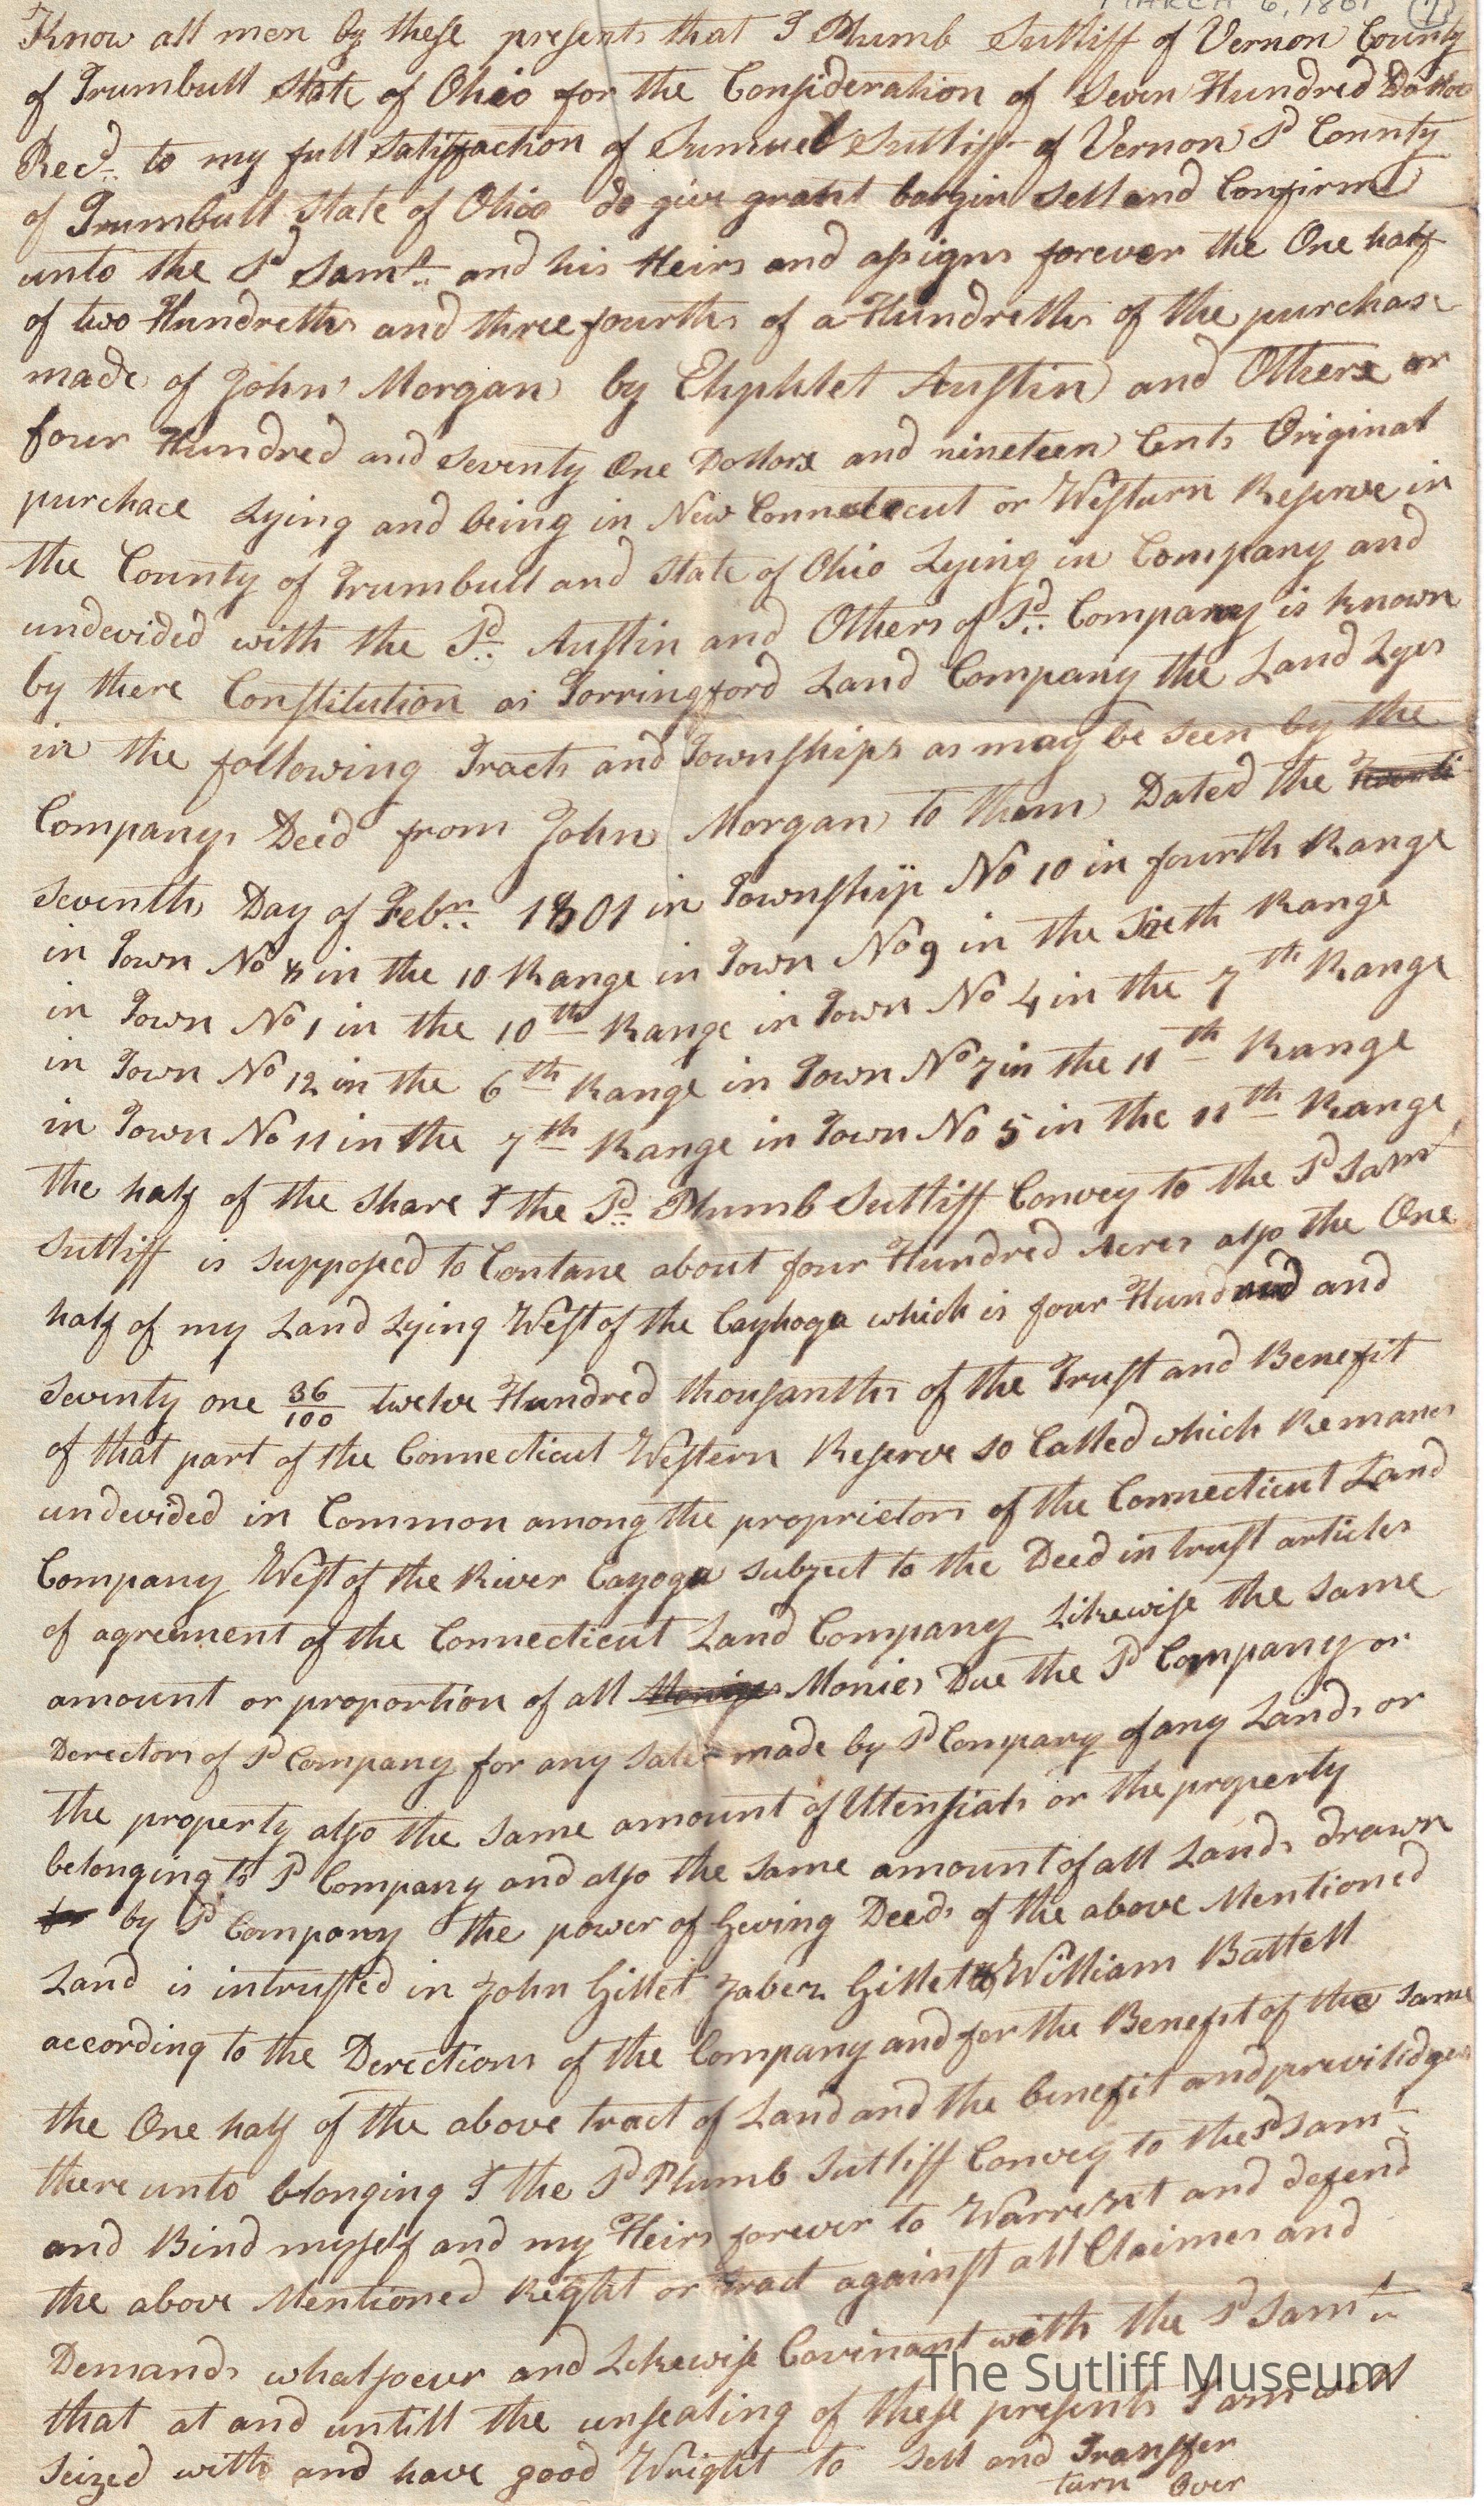 MARCH 6, 1801
Know all men by these presents that I Plumb Sutliff of Vernon County
of Trumbull State of Ohio for the Consideration of Seven Hundred Dollors
Recd. to my full Satisfaction of Samuel Sutliff of Vernon Sd County
of Trumbull State of Ohio do give grant bargin Sell and Confirme
unto the Sd Saml. and his Heirs and assigns forever the One half
of two Hundreths and three fourths of a Hundreths of the purchase
made of John Morgan by Eliphlet Austin and Others or
four Hundred and Seventy One Dollors and nineteen Cents Original
purchace Lying and being in New Connetecut or Westurn Reserve in
the County of Trumbull and State of Ohio Lying in Company and
undevided with the Sd. Austin and Others of Sd. Company is known
by there Constitution as Torringford Land Company the Land Lyes
in the following Tracts and Townships as may be seen by the
Companys Deed from John Morgan to them Dated the
Seventh Day of Febr. 1801 in Township No 10 in fourth Range
in Town No 8 in the 10 Range in Town No 9 in the Sixth Range
in Town No 1 in the 10th Range in Town No 4 in the 7th Range
in Town No 12 in the 6th Range in Town No 7 in the 11th Range
in Town No 11 in the 7th Range in Town No 5 in the 11th Range
the half of the Share I the Sd. Plumb Sutliff Convey to the Sd Saml
Sutliff is Supposed to Contane about four Hundred Acres also the One
half of my Land Lying West of the Cayhoga which is four Hundred and
Seventy one 36/100 twelve Hundred thousanths of the Trust and Benefit
of that part of the Connecticut Western Reserve so Called which Remanes
undevided in Common among the proprietors of the Connecticut Land
Company West of the River Cayoga subject to the Deed in trust articles
of agreement of the Connecticut Land Company Likewise the same
amount or proportion of all Monies Due the Sd Company or
Derectors of Sd Company for any Sales made by Sd Company of any Lands or
the property also the same amount of Utensials or the property
belonging to Sd Company and also the same amount of all Lands drawn
by Sd Company the power of Geving Deeds of the above Mentioned
Land is intrusted in John Gillet Jabez Gillet & William Battell
according to the Derections of the Company and for the Benefit of the same
the One half of the above tract of Land and the benefit and previlidges
there unto blonging I the Sd Plumb Sutliff Convey to the Sd Saml.
and Bind myself and my Heirs forever to Warrent and defend
the above Mentioned Right or tract against all Claimes and
Demands whatsoever and Likewise Covinant with the Sd Saml.
that at and untill the unsealing of these presents I am well
Seized with and have good Wright to Sell and Transfer
turn Over
The Sutliff Museum